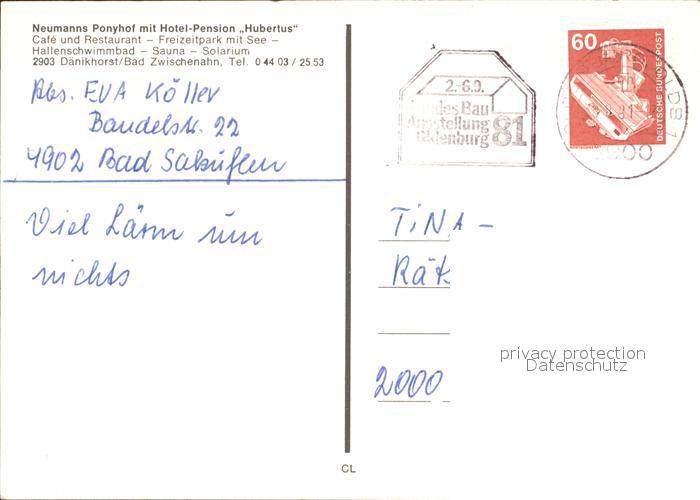 Neumanns Ponyhof mit Hotel-Pension „Hubertus“
Café und Restaurant – Freizeitpark mit See –
Hallenschwimmbad – Sauna – Solarium
2903 Dänikhorst/Bad Zwischenahn, Tel. 0 44 03 / 25 53
Abs. EVA Köller
Bandelstr. 22
4902 Bad Salzuflen
Viel Lärm um
nichts
2.-6.9.
Landes Bau
Ausstellung
Oldenburg 81
60
DEUTSCHE BUNDESPOST
TiNA –
Rät
2000
privacy protection
Datenschutz
CL